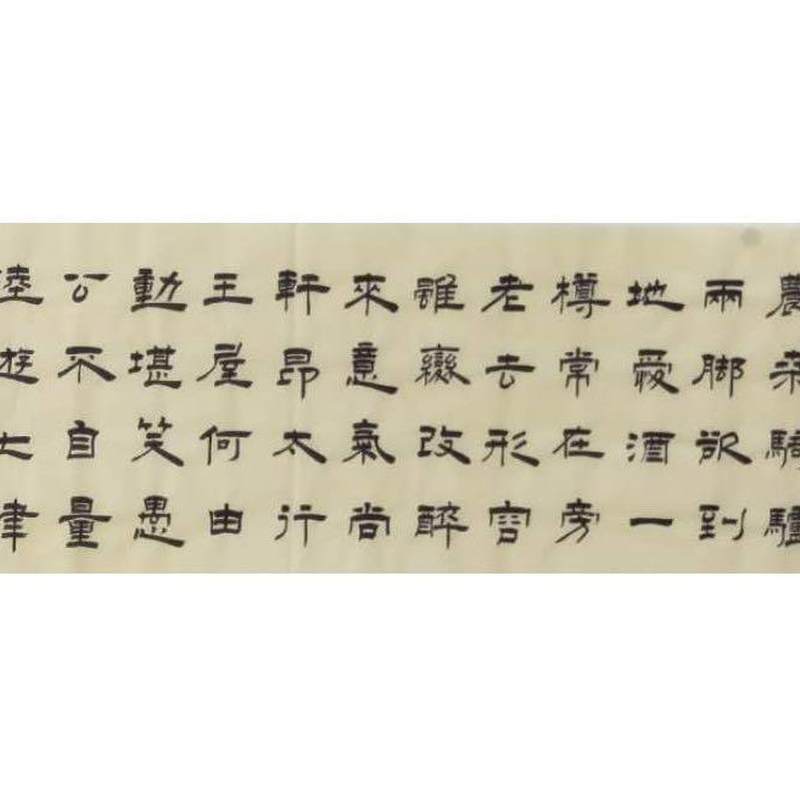 農騎驢
兩脚欲到
地愛酒一
樽常在旁
老去形容
雖變改醉
來意氣尚
軒昂太行
王屋何由
動堪笑愚
公不自量
陸游七律